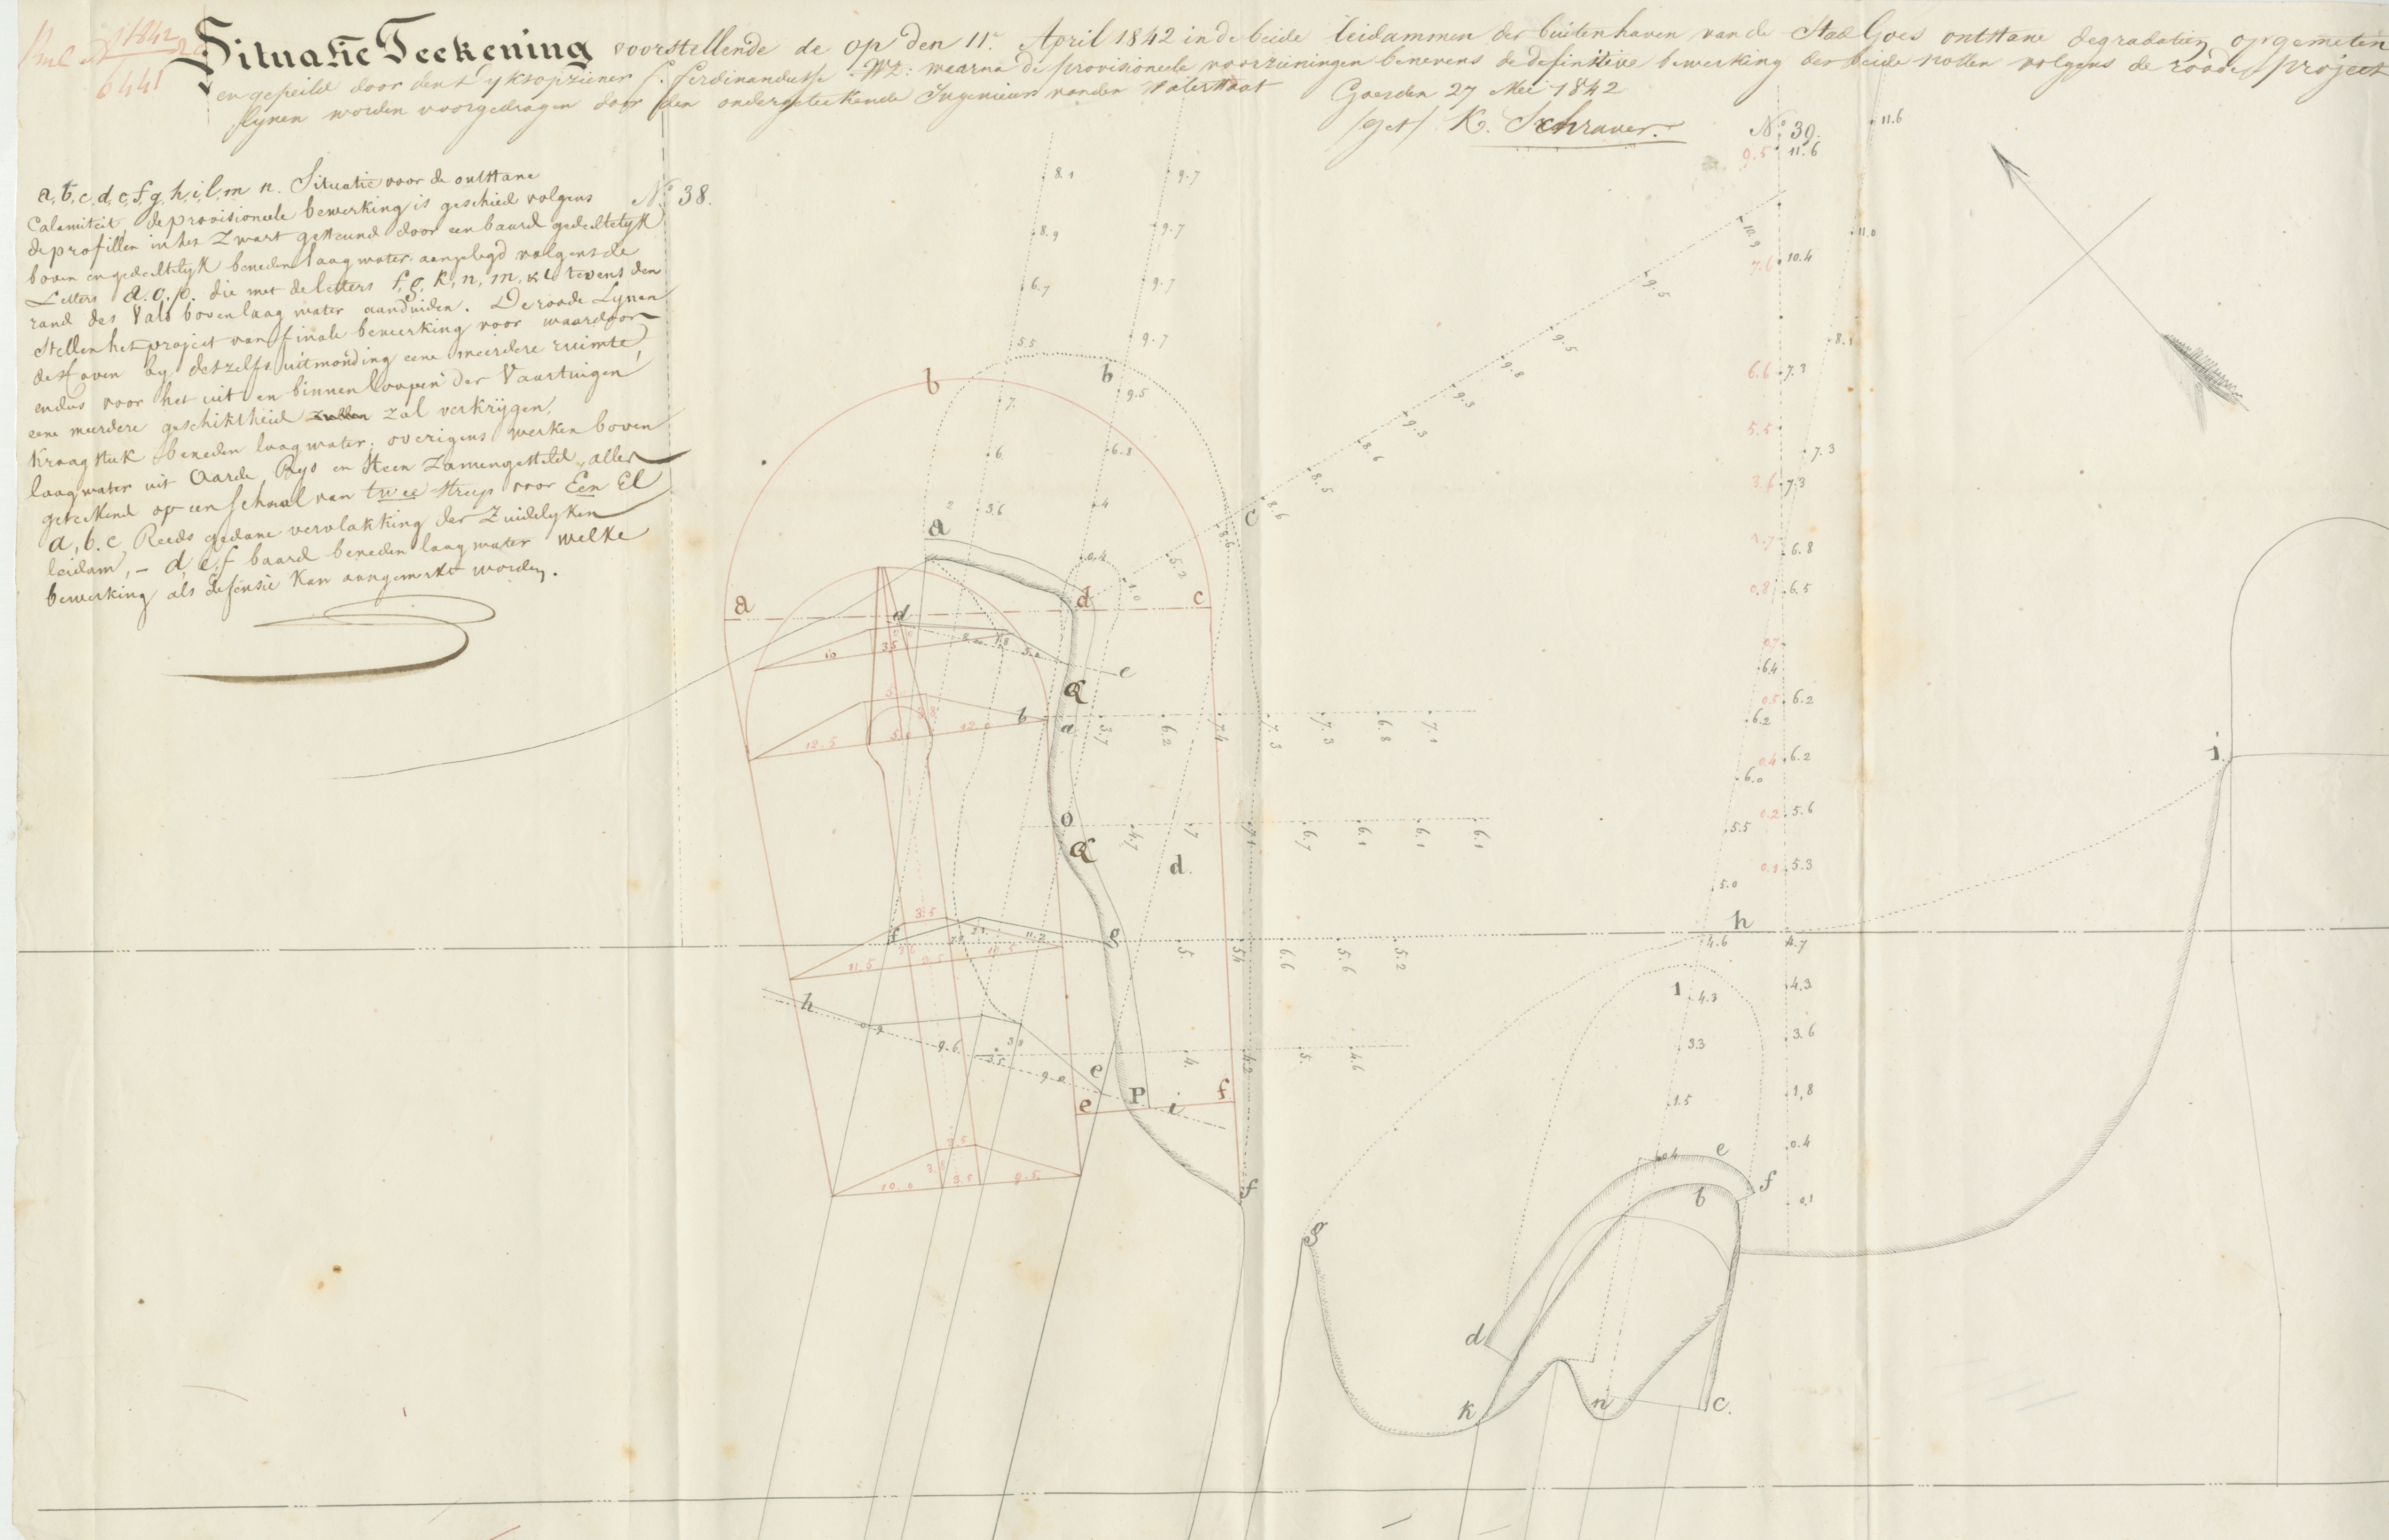 1842
6441
Situatie Teekening voorstellende de op den 11e April 1842 in de beide leidammen der buitenhaven van de Stad Goes ontstane degradatien opgemeten
en gepeild door den Ryksopziener F. Ferdinandusse Wz: waarna de provisioneele voorzieningen benevens de definitive bewerking der beide nollen volgens de roode project
lynen worden voorgedragen door den ondergeteekende Ingenieur van den Waterstaat Goes den 27 Mei 1842
/get/ K. Schraver.
a, b, c, d, e, f, g, h, i, l, m n. Situatie voor de ontstane
Calamiteit, de provisioneele bewerking is geschied volgens
de profillen in het Zwart gesteund door een baard gedeeltelyk
boven en gedeeltelyk beneden laag water aangelegd volgens de
Letters a. o. p. die met de letters f, g, k, n, m, & l tevens den
rand des Vals boven laag water aanduiden. De roode Lynen
Stellen het project van finale bewerking voor waardoor
de Haven by deszelfs uitmonding eene meerdere ruimte,
en dus voor het uit en binnen loopen der Vaartuigen
eene meerdere geschiktheid zullen zal verkrygen,
Kraagstuk beneden laag water; overigens werken boven
laag water uit Aarde, Rys en Steen Zamengesteld, alles
geteekend op een Schaal van twee streep voor Een El
a, b. c, Reeds gedane vervlakking der Zuidelyken
leidam, - d, e, f baard beneden laag water welke
bewerking als defensie Kan aangemerkt worden.
No 38.
No 39.
9.5 11.6
11.6
8.1
9.7
8.9
9.7
6.7
9.7
5.5
9.7
b
b
9.5
7.
6.
6.8
2
3.6
4
a
c
0.4
1.0
5.2
8.6
8.6
8.5
8.6
9.3
9.3
9.8
9.5
9.5
10.9
11.0
7.6 10.4
8.1
6.6 7.3
5.5
7.3
3.6 7.3
6.8
0.8 6.5
0.7
6.4
0.5 6.2
6.2
0.4 6.2
6.0
0.2 5.6
5.5
5.3
5.0
a
d
c
d
10
3.5
5.0
e
a
b
a
3.7
6.2
7.4
7.3
7.3
6.8
7.1
12.5
5.0
12.0
o
a
4.7
7
7.1
6.7
6.1
6.1
6.1
d.
i.
3.5
f
11.2
g
11.5
5.
5.4
6.6
5.6
5.2
h
4.6
4.7
h
9.6
3.5
9.0
4.
4.2
5.
4.6
e
e
P
i
f
l
4.3
4.3
3.3
3.6
1.5
1,8
0.4
0.4
e
f
b
0.1
3.5
10.0
3.5
9.5
f
g
d
k
n
c.